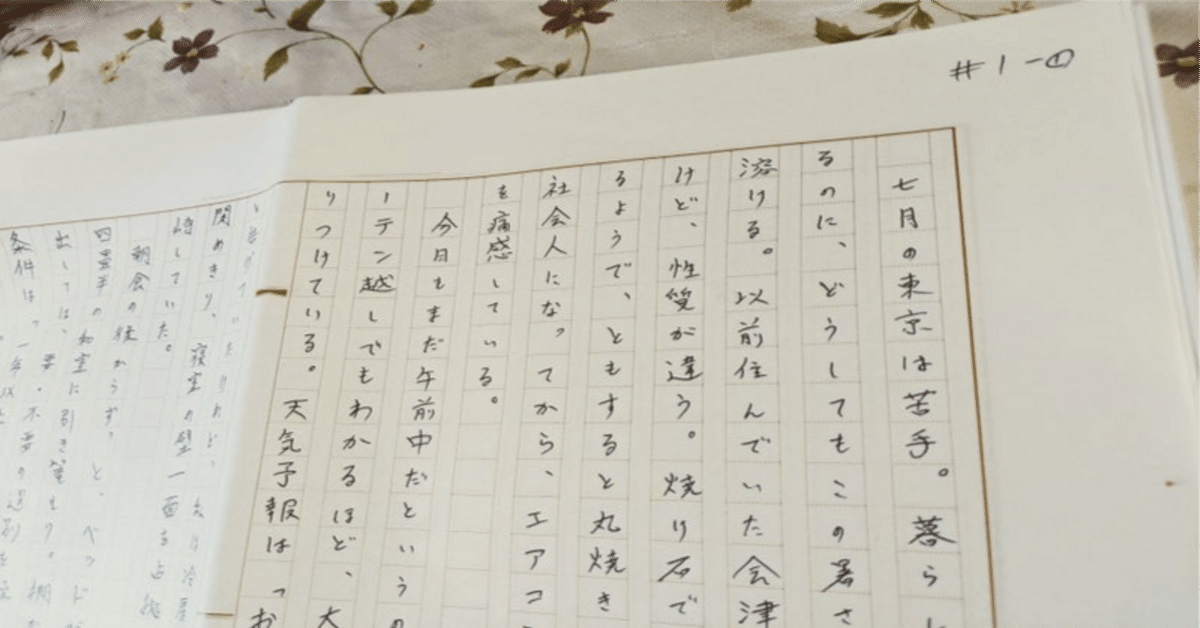 #1-①
七月の東京は苦手。暮らし
るのに、どうしてもこの暑さ
溶ける。以前住んでいた会津
けど、性質が違う。焼け石で
るようで、ともすると丸焼き
社会人になってから、エアコ
を痛感している。
今日もまだ午前中だというの
ーテン越しでもわかるほど、大
りつけている。天気予報は「お
閉めきり、寝室の壁一面を占拠
崎していた。
朝食の後からずっと、ベッド
四畳半の和室に引き篭もり、棚
出しては、要・不要の選別を
条件は「一年以上